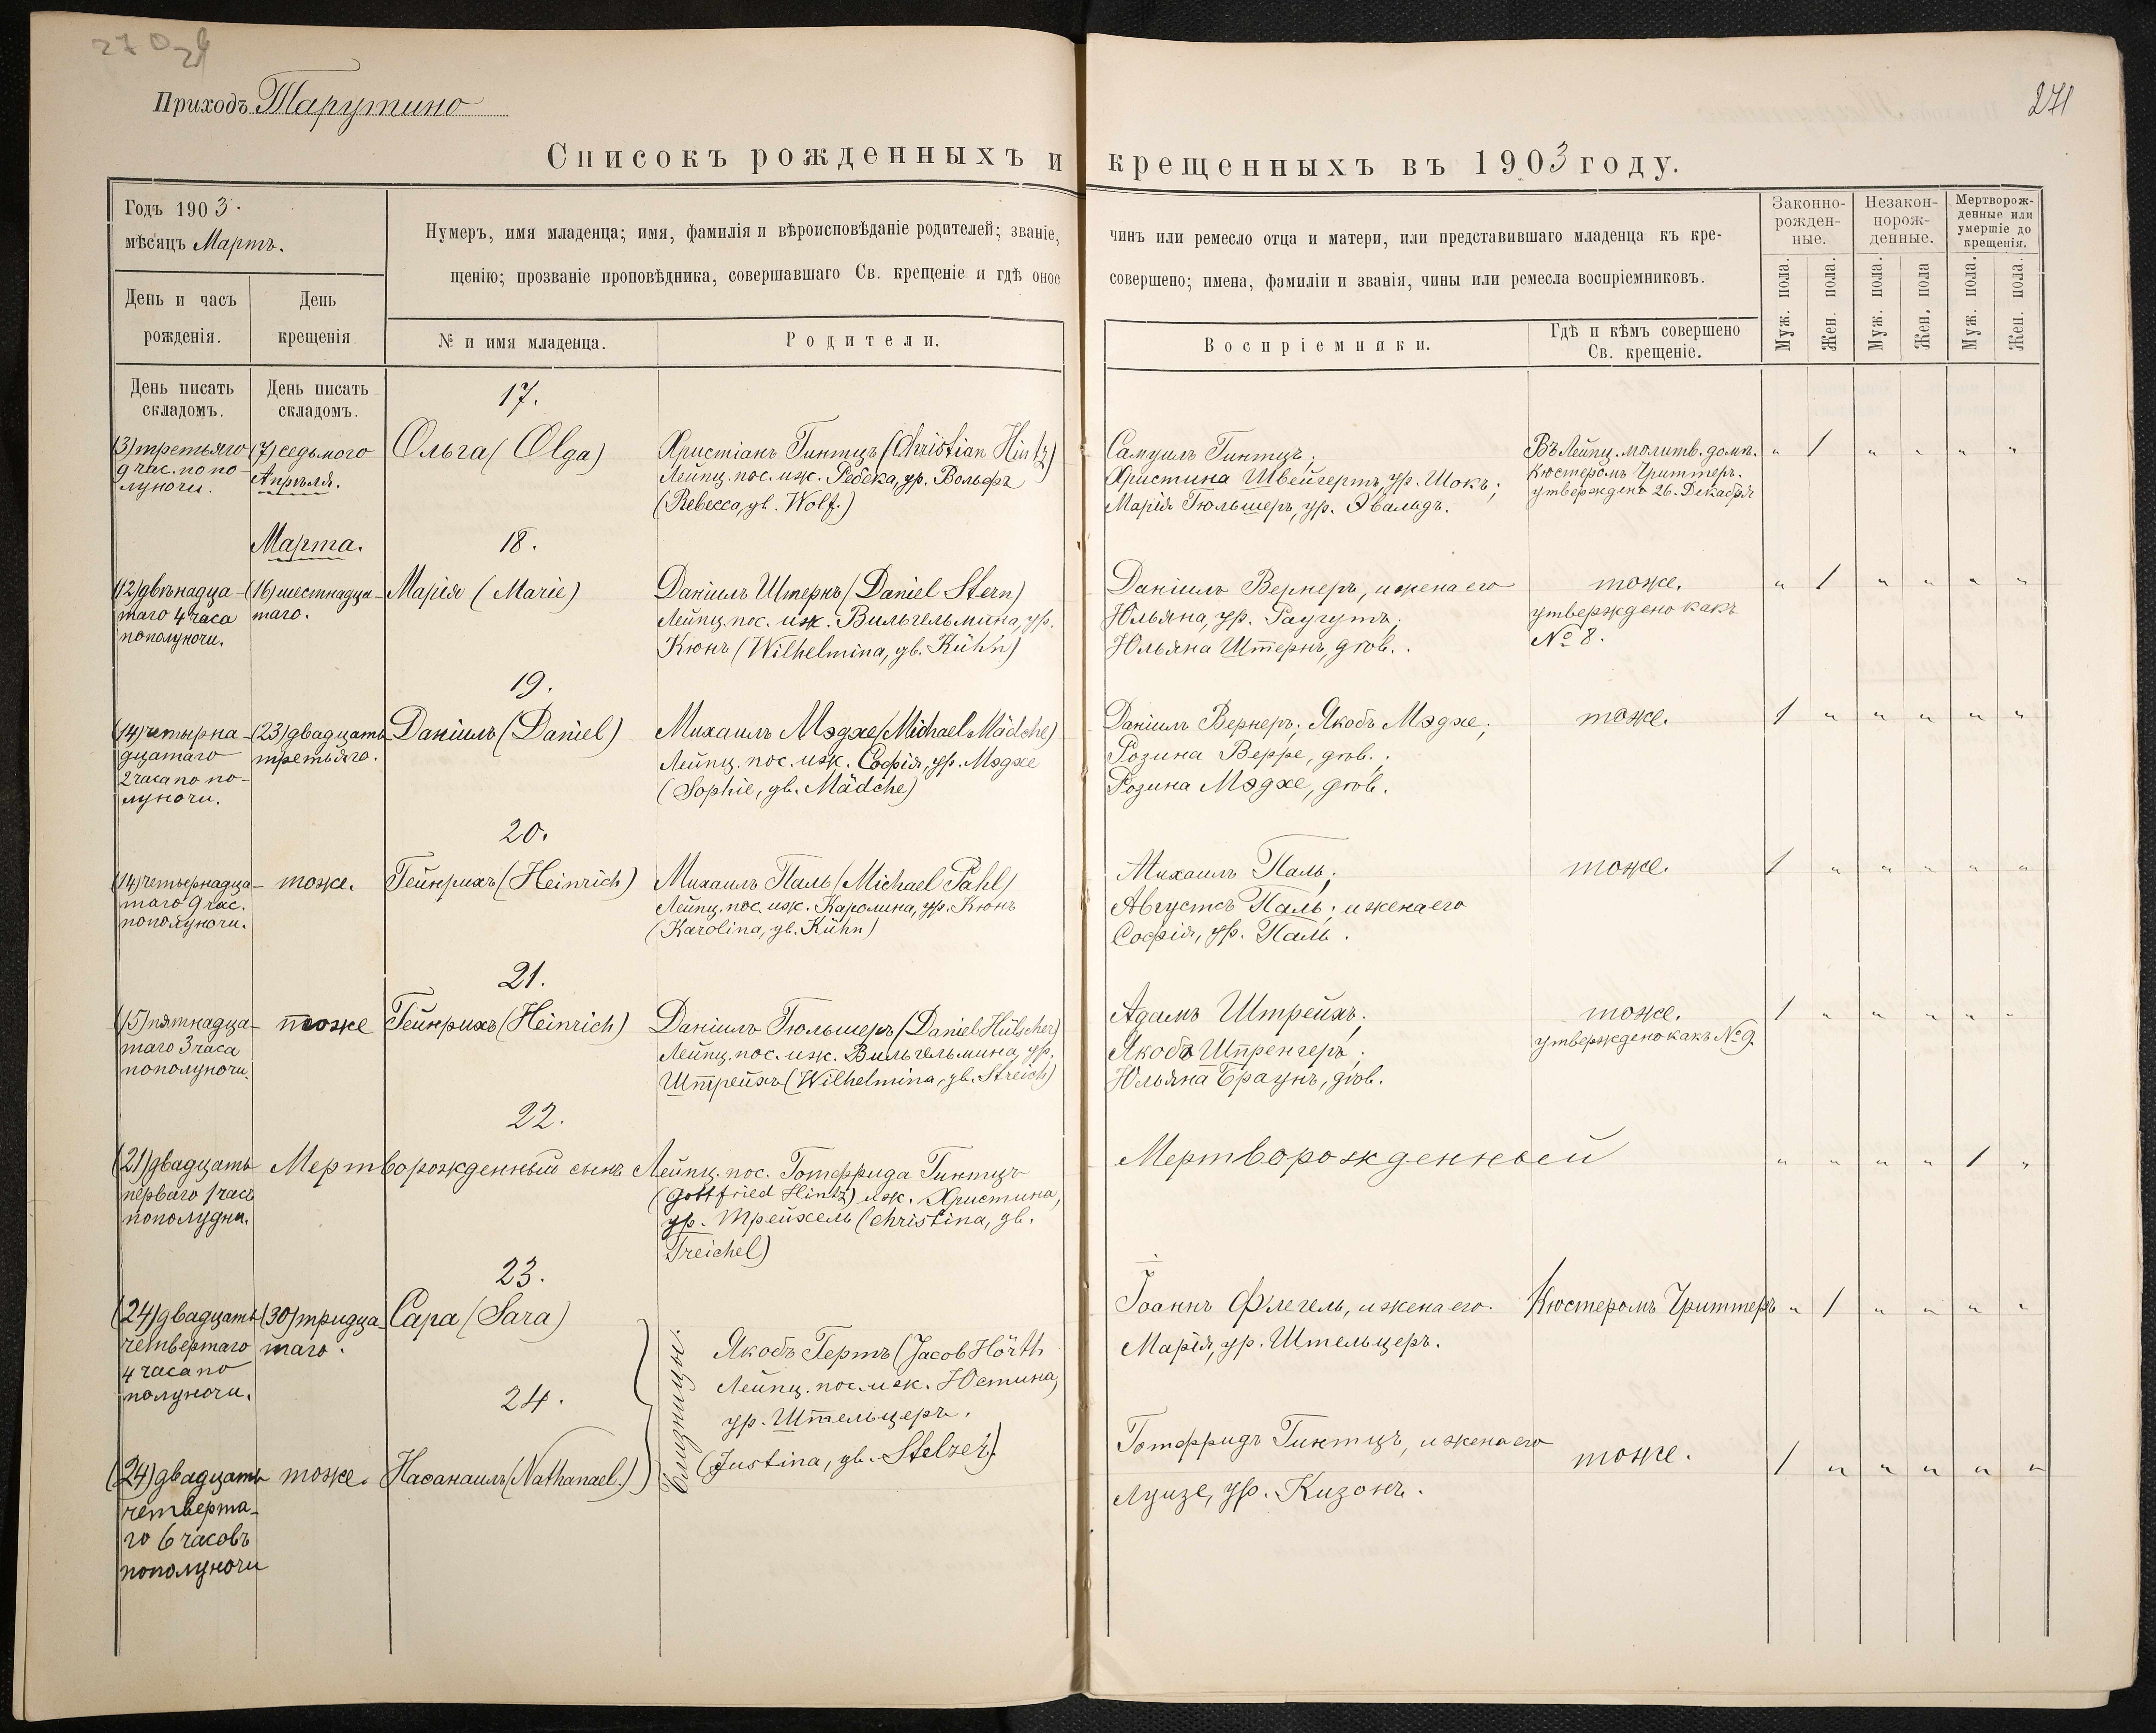 270
271
Приходъ Тарутино
Списокъ рожденныхъ и крещенныхъ въ 1903 году.
Годъ 1903.
мѣсяцъ Мартъ.
День и часъ
рожденія.
День
крещенія
Нумеръ, имя младенца; имя, фамилія и вѣроисповѣданіе родителей; званіе, чинъ или ремесло отца и матери, или представившаго младенца къ кре-
щенію; прозваніе проповѣдника, совершавшаго Св. крещеніе и гдѣ оное совершено; имена, фамиліи и званія, чины или ремесла воспріемниковъ.
№ и имя младенца.
Родители.
Воспріемники.
Гдѣ и кѣмъ совершено
Св. крещеніе.
Законно-
рожден-
ные.
Незакон-
норож-
денные.
Мертворож-
денные или
умершіе до
крещенія.
Муж. пола.
Жен. пола.
Муж. пола.
Жен. пола
Муж. пола.
Жен. пола.
День писать
складомъ.
День писать
складомъ.
17.
(3) третьяго
9 час. по по-
луночи.
(7) седьмого
Апрѣля.
Ольга (Olga)
Христіанъ Гинтцъ (Christian Hintz)
Лейпц. пос. иж. Ребека, ур. Вольфъ
(Rebecca, gb. Wolf.)
Самуилъ Гинтцъ;
Христина Швейгертъ, ур. Шокъ;
Марія Гюльшеръ, ур. Эвальдъ.
Въ Лейпц. молитв. домѣ.
Кюстеромъ Гриттеръ.
утверждено 26. Декабря
" 1 " " " "
Марта.
18.
(12) двѣнадца-
таго 4 часа
пополуночи.
(16) шестнадца-
таго.
Марія (Marie)
Даніилъ Штернъ (Daniel Stern)
Лейпц. пос. иж. Вильгельмина, ур.
Кюнъ (Wilhelmina, gb. Kühn)
Даніилъ Вернеръ, и жена его
Юльяна, ур. Раугутъ;
Юльяна Штернъ, дѣв.
тоже.
утверждено какъ
№ 8.
" 1 " " " "
19.
(14) четырна-
дцатаго
2 часа по по-
луночи.
(23) двадцать
третьяго.
Даніилъ (Daniel)
Михаилъ Мэдхе (Michael Mädche)
Лейпц. пос. иж. Софія, ур. Мэдхе
(Sophie, gb. Mädche)
Даніилъ Вернеръ; Якобъ Мэдхе;
Розина Верре, дѣв.;
Розина Мэдхе, дѣв.
тоже.
1 " " " " "
20.
(14) четырнадца-
таго 9 час.
пополуночи.
тоже.
Гейнрихъ (Heinrich)
Михаилъ Паль (Michael Pahl)
Лейпц. пос. иж. Каролина, ур. Кюнъ
(Karolina, gb. Kühn)
Михаилъ Паль;
Августъ Паль; и жена его
Софія, ур. Паль.
тоже.
1 " " " " "
21.
(15) пятнадца-
таго 3 часа
пополуночи.
тоже
Гейнрихъ (Heinrich)
Даніилъ Гюльшеръ (Daniel Hülscher)
Лейпц. пос. иж. Вильгельмина, ур.
Штрейхъ (Wilhelmina, gb. Streich)
Адамъ Штрейхъ;
Якобъ Шпренгеръ;
Юльяна Браунъ, дѣв.
тоже.
утверждено какъ № 9.
1 " " " " "
22.
(21) двадцать
перваго 1 часъ
пополудни.
Мертворожденный сынъ Лейпц. пос. Готфрида Гинтцъ
(Gottfried Hintz) иж. Христина,
ур. Трейхель (Christina, gb.
Treichel)
Мертворожденный
" " " " 1 "
23.
(24) двадцать
четвертаго
4 часа по
полуночи.
(30) тридца-
таго.
Сара (Sara)
близницы.
Якобъ Гертъ (Jacob Hörth
Лейпц. пос. иж. Юстина,
ур. Штельцеръ.
(Justina, gb. Stelzer)
Іоаннъ Флегель, и жена его.
Марія, ур. Штельцеръ.
Кюстеромъ Гриттеръ
" 1 " " " "
24.
(24) двадцать
четверта-
го 6 часовъ
пополуночи
тоже.
Насанаилъ (Nathanael.)
Готфридъ Гинтцъ, и жена его
Луизе, ур. Кизонъ.
тоже.
1 " " " " "